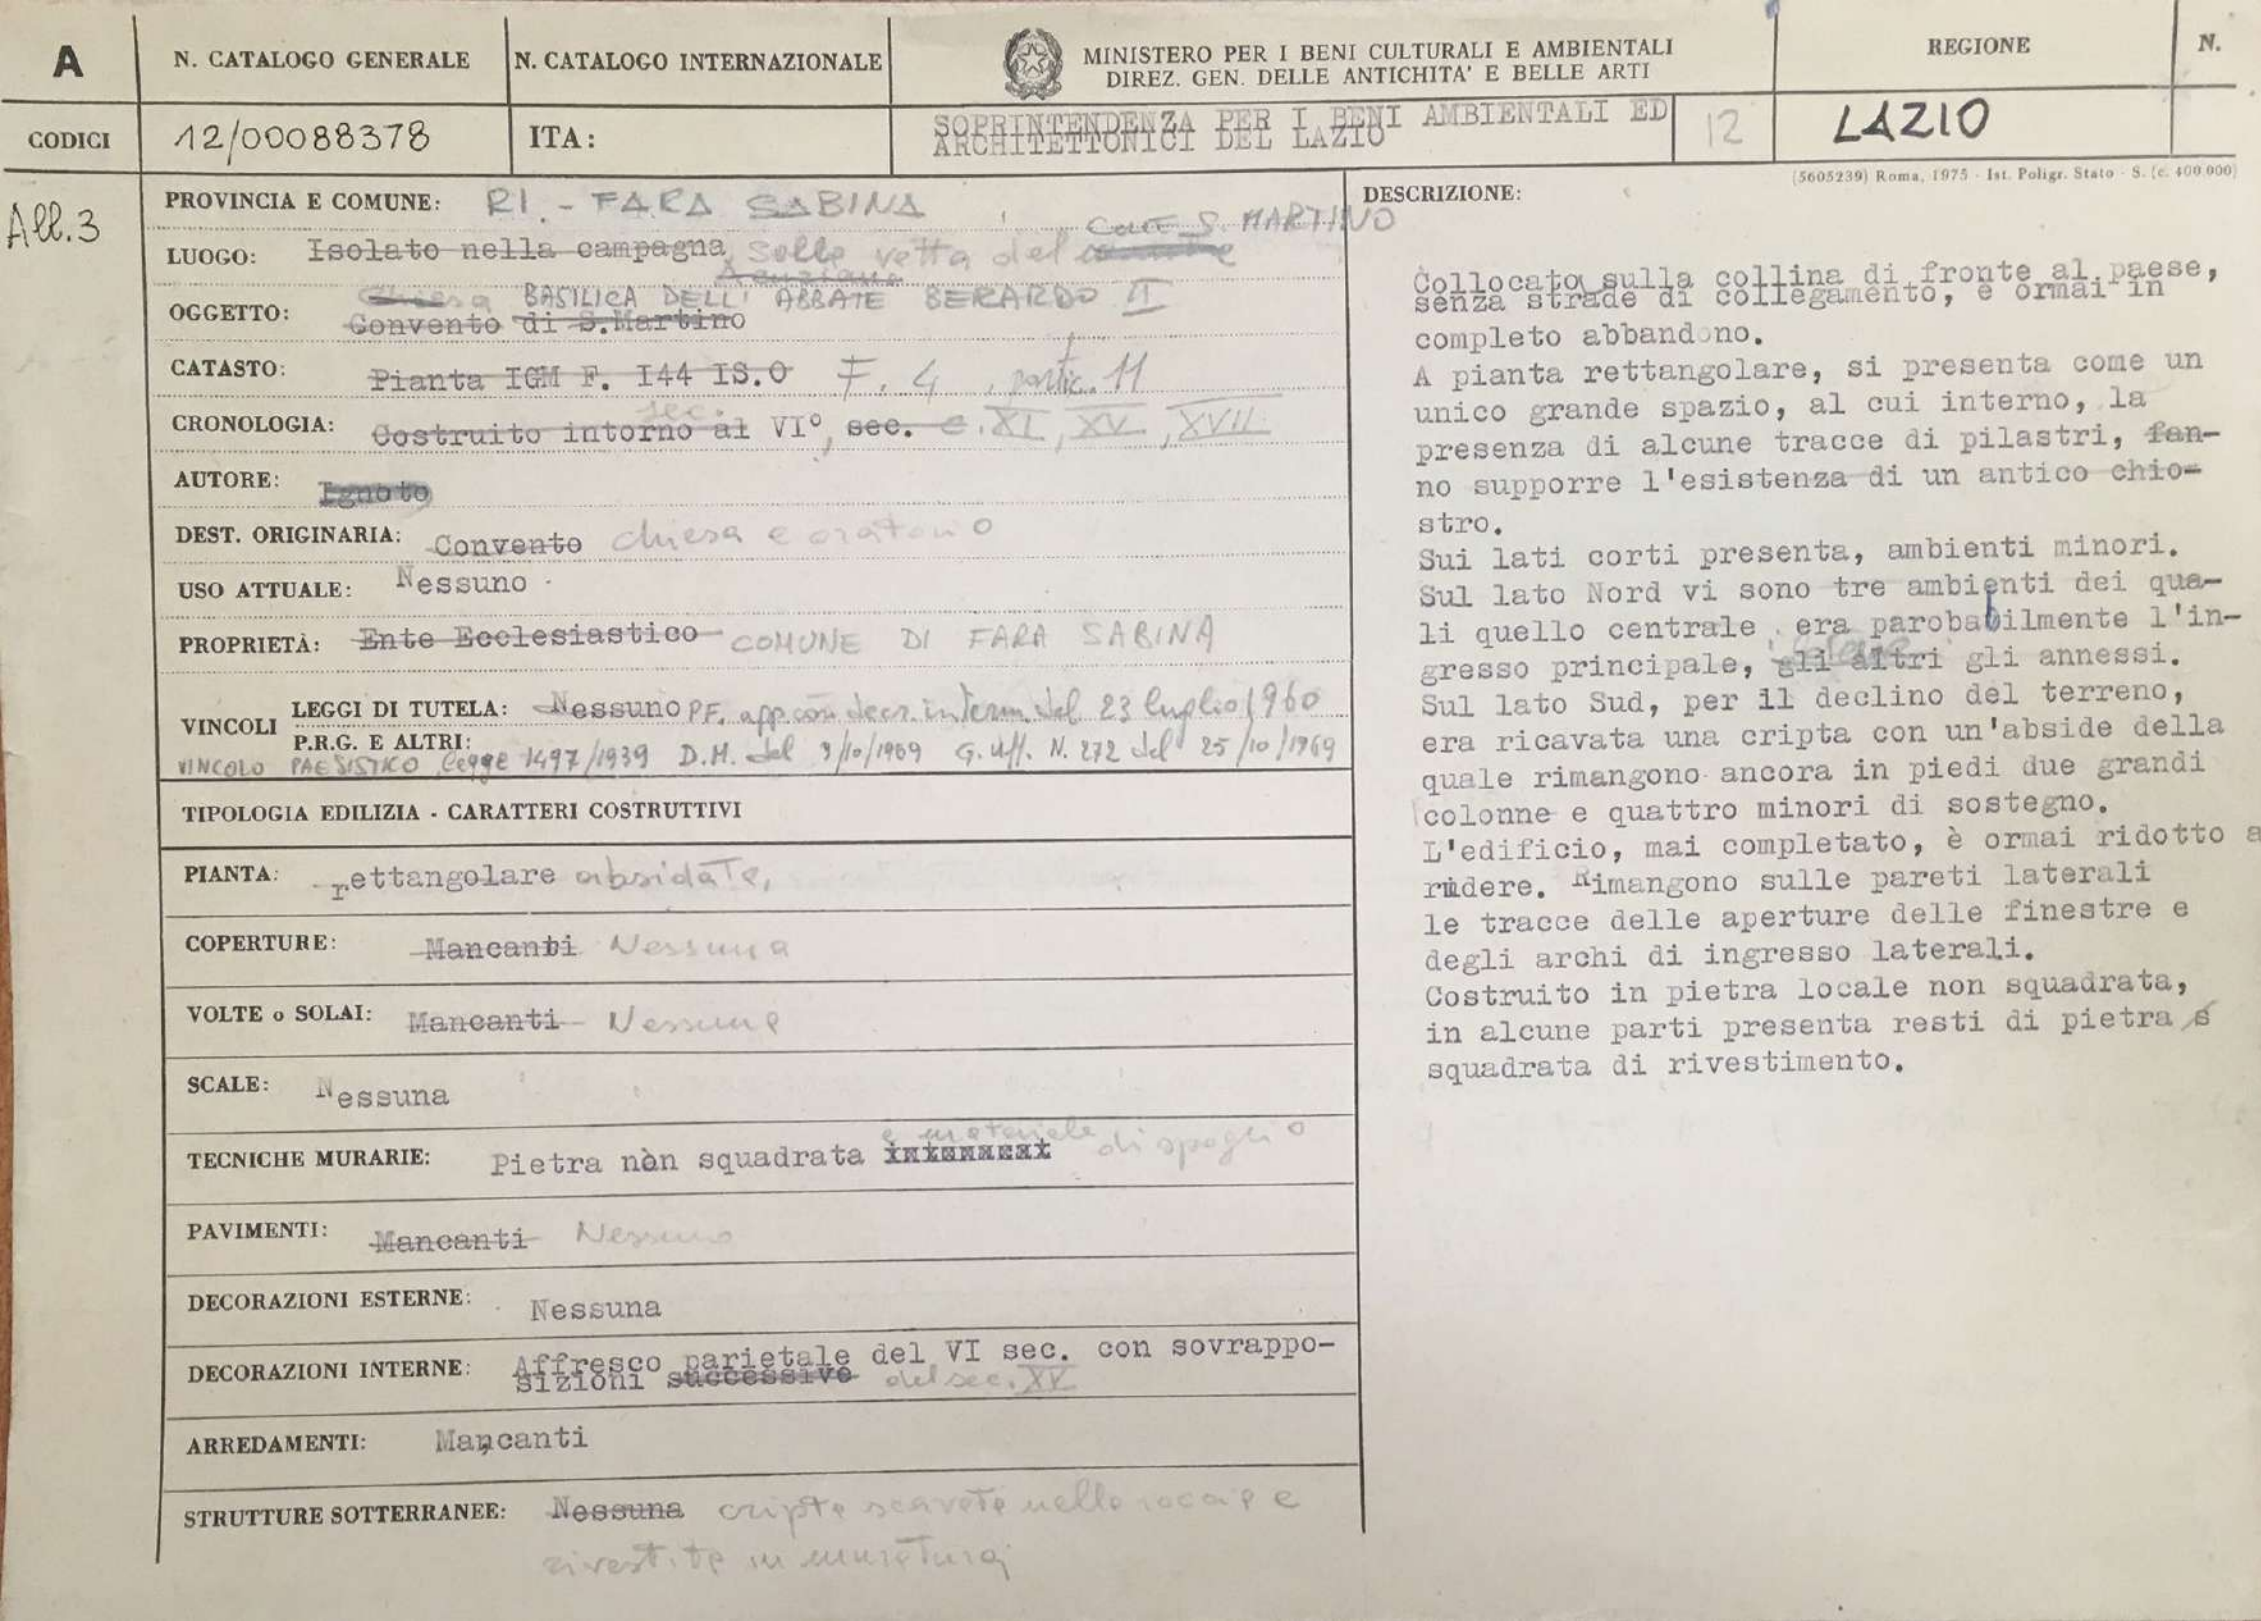 A
N. CATALOGO GENERALE
N. CATALOGO INTERNAZIONALE
MINISTERO PER I BENI CULTURALI E AMBIENTALI
DIREZ. GEN. DELLE ANTICHITA' E BELLE ARTI
REGIONE
N.
CODICI
12/00088378
ITA:
SOPRINTENDENZA PER I BENI AMBIENTALI ED
ARCHITETTONICI DEL LAZIO
12
LAZIO
(5605239) Roma, 1975 - Ist. Poligr. Stato - S. (c. 400.000)
All.3
PROVINCIA E COMUNE: RI. - FARA SABINA
COLLE S. MARTINO
LUOGO: Isolato nella campagna, sulla vetta del
OGGETTO: Chiesa BASILICA DELL' ABBATE BERARDO II
Convento di S.Martino
CATASTO: Pianta IGM F. I44 IS.O F. 4, partic. 11
CRONOLOGIA: Costruito intorno al sec. VI°, sec. e. XI, XV, XVII
AUTORE: Ignoto
DEST. ORIGINARIA: Convento chiesa e oratorio
USO ATTUALE: Nessuno
PROPRIETÀ: Ente Ecclesiastico COMUNE DI FARA SABINA
VINCOLI
LEGGI DI TUTELA: Nessuno P.F. app. con decr. interm. del 23 luglio 1960
P.R.G. E ALTRI:
VINCOLO PAESISTICO Legge 1497/1939 D.M. del 9/10/1969 G. Uff. N. 272 del 25/10/1969
TIPOLOGIA EDILIZIA - CARATTERI COSTRUTTIVI
PIANTA: rettangolare absidata,
COPERTURE: Mancanti Nessuna
VOLTE o SOLAI: Mancanti Nessuna
SCALE: Nessuna
TECNICHE MURARIE: Pietra non squadrata e materiale di spoglio
PAVIMENTI: Mancanti Nessuno
DECORAZIONI ESTERNE: Nessuna
DECORAZIONI INTERNE: Affresco parietale del VI sec. con sovrappo-
sizioni successive del sec. XV
ARREDAMENTI: Mancanti
STRUTTURE SOTTERRANEE: Nessuna cripta scavata nella roccia e
rivestita in muratura
DESCRIZIONE:
Collocato sulla collina di fronte al paese,
senza strade di collegamento, è ormai in
completo abbandono.
A pianta rettangolare, si presenta come un
unico grande spazio, al cui interno, la
presenza di alcune tracce di pilastri, fan-
no supporre l'esistenza di un antico chio-
stro.
Sui lati corti presenta, ambienti minori.
Sul lato Nord vi sono tre ambienti dei qua-
li quello centrale era parobabilmente l'in-
gresso principale, gli altri gli annessi.
Sul lato Sud, per il declino del terreno,
era ricavata una cripta con un'abside della
quale rimangono ancora in piedi due grandi
colonne e quattro minori di sostegno.
L'edificio, mai completato, è ormai ridotto a
rudere. Rimangono sulle pareti laterali
le tracce delle aperture delle finestre e
degli archi di ingresso laterali.
Costruito in pietra locale non squadrata,
in alcune parti presenta resti di pietra s
squadrata di rivestimento.